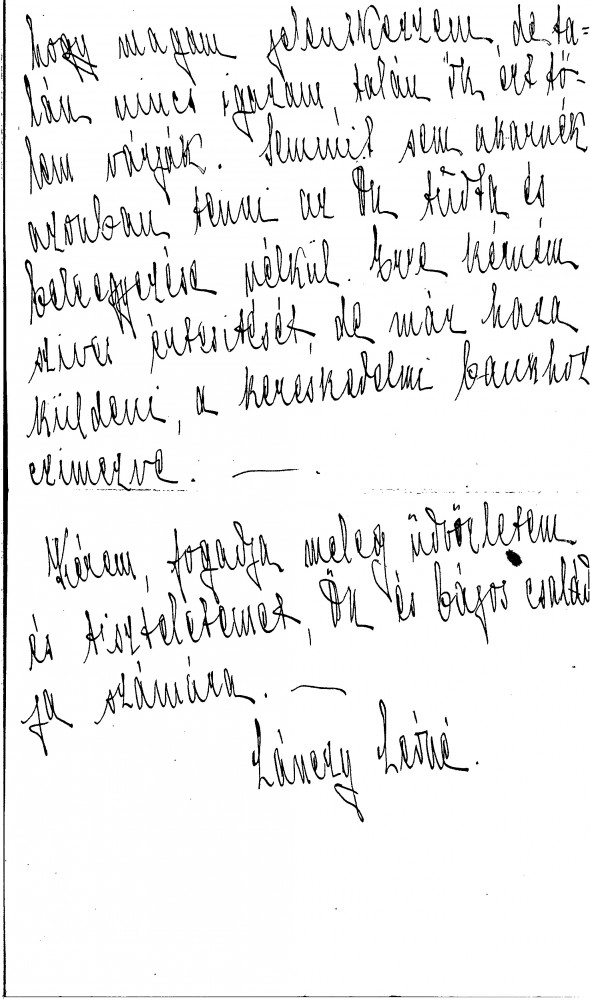 hogy magam jelentkezzem, de ta=
lán nincs igazam, talán ők ezt tő-
lem várják. Semmit sem akarnék
azonban tenni az Ön tudta és
beleegyezése nélkül. Erre kérném
szives értesitését, de már haza
küldeni, a kereskedelmi bankhoz
czimezve. —.
Kérem, fogadja meleg üdvözletem
és tiszteletemet, Ön és bájos család
ja számára. —
Lánczy Leóné.